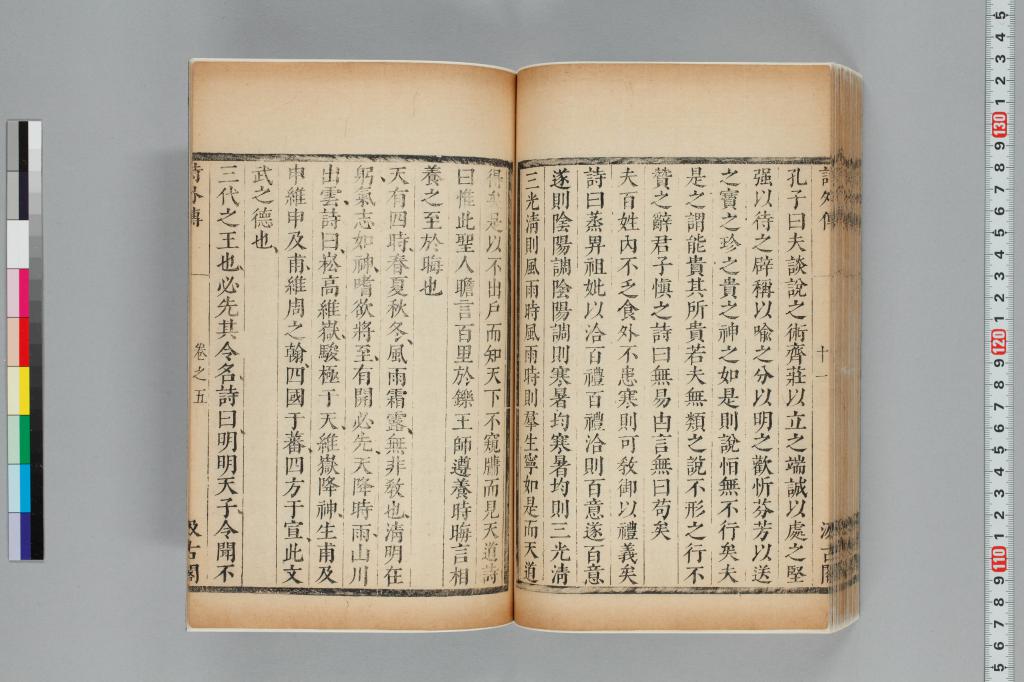 詩外傳
十一
汲古閣
孔子曰夫談說之術齊莊以立之端誠以處之堅
强以待之辟稱以喩之分以明之歡忻芬芳以送
之寶之珍之貴之神之如是則說恒無不行矣夫
是之謂能貴其所貴若夫無類之說不形之行不
贊之辭君子愼之詩曰無易由言無曰苟矣
夫百姓內不乏食外不患寒則可敎御以禮義矣
詩曰蒸畀祖妣以洽百禮百禮洽則百意遂百意
遂則陰陽調陰陽調則寒暑均寒暑均則三光淸
三光淸則風雨時風雨時則羣生寧如是而天道
得矣是以不出戶而知天下不窺牖而見天道詩
曰惟此聖人瞻言百里於鑠王師遵養時晦言相
養之至於晦也
天有四時春夏秋冬風雨霜露無非敎也淸明在
躬氣志如神嗜欲將至有開必先天降時雨山川
出雲詩曰崧高維嶽駿極于天維嶽降神生甫及
申維申及甫維周之翰四國于蕃四方于宣此文
武之德也
三代之王也必先其令名詩曰明明天子令聞不
詩外傳
卷之五
汲古閣
5
4
3
2
1
130
9
8
7
6
5
4
3
2
1
120
9
8
7
6
5
4
3
2
1
110
9
8
7
6
5